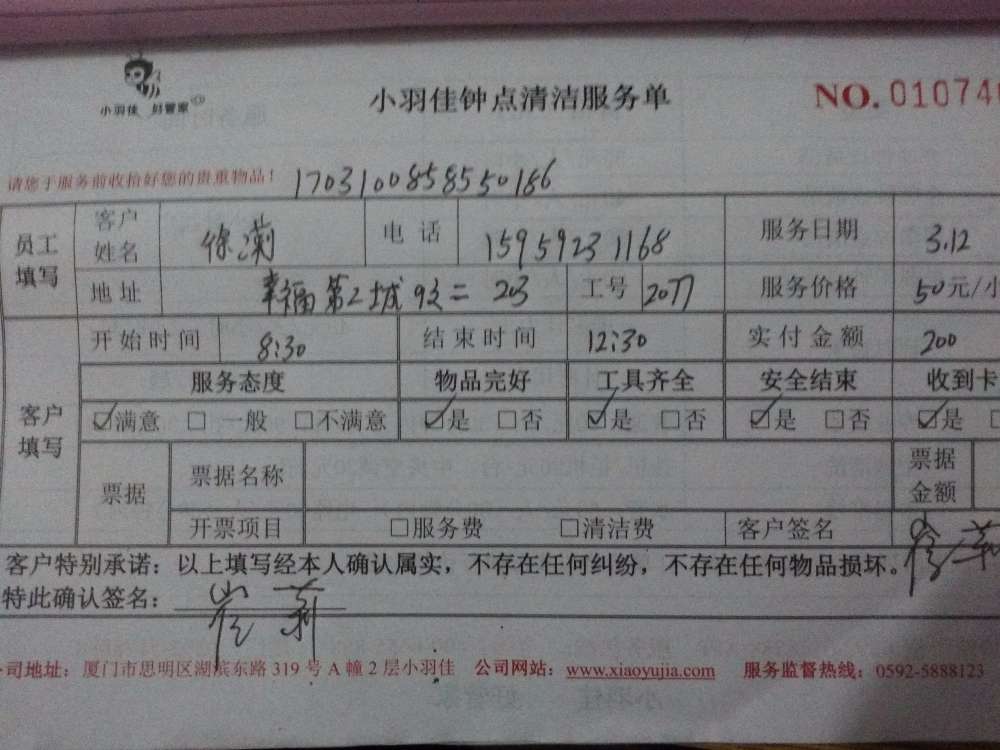 小羽佳 好管家
小羽佳钟点清洁服务单 NO. 01074
请您于服务前收拾好您的贵重物品! 1703100858550186
员工填写 客户姓名 徐 电话 15959231168 服务日期 3.12
地址 幸福第2城 二 203 工号 2077 服务价格 50元/小
客户填写 开始时间 8:30 结束时间 12:30 实付金额 200
服务态度 物品完好 工具齐全 安全结束 收到卡
☑满意 □一般 □不满意 ☑是 □否 ☑是 □否 ☑是 □否 ☑是
票据 票据名称 票据金额
开票项目 □服务费 □清洁费 客户签名
客户特别承诺:以上填写经本人确认属实,不存在任何纠纷,不存在任何物品损坏。
特此确认签名:
司地址:厦门市思明区湖滨东路 319 号 A 幢 2 层小羽佳 公司网站:www.xiaoyujia.com 服务监督热线:0592-5888123